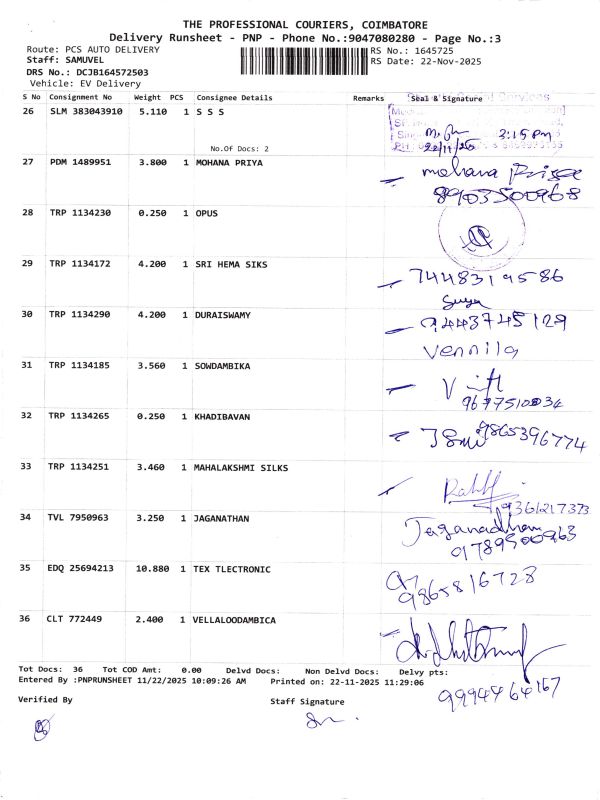 THE PROFESSIONAL COURIERS, COIMBATORE
Delivery Runsheet - PNP - Phone No.:9047080280 - Page No.:3
Route: PCS AUTO DELIVERY RS No.: 1645725
Staff: SAMUVEL RS Date: 22-Nov-2025
DRS No.: DCJB164572503
Vehicle: EV Delivery
S No Consignment No Weight PCS Consignee Details Remarks Seal & Signature
26 SLM 383043910 5.110 1 S S S
3:15 PM
No.Of Docs: 2
22/11/25
27 PDM 1489951 3.800 1 MOHANA PRIYA mohana
8903500968
28 TRP 1134230 0.250 1 OPUS
29 TRP 1134172 4.200 1 SRI HEMA SIKS 7448319586
30 TRP 1134290 4.200 1 DURAISWAMY 9443745129
Vennila
31 TRP 1134185 3.560 1 SOWDAMBIKA
32 TRP 1134265 0.250 1 KHADIBAVAN 9865396774
33 TRP 1134251 3.460 1 MAHALAKSHMI SILKS
9361217373
34 TVL 7950963 3.250 1 JAGANATHAN
9789500963
35 EDQ 25694213 10.880 1 TEX TLECTRONIC
9865816728
36 CLT 772449 2.400 1 VELLALOODAMBICA
Tot Docs: 36 Tot COD Amt: 0.00 Delvd Docs: Non Delvd Docs: Delvy pts:
Entered By :PNPRUNSHEET 11/22/2025 10:09:26 AM Printed on: 22-11-2025 11:29:06
9994464167
Verified By Staff Signature